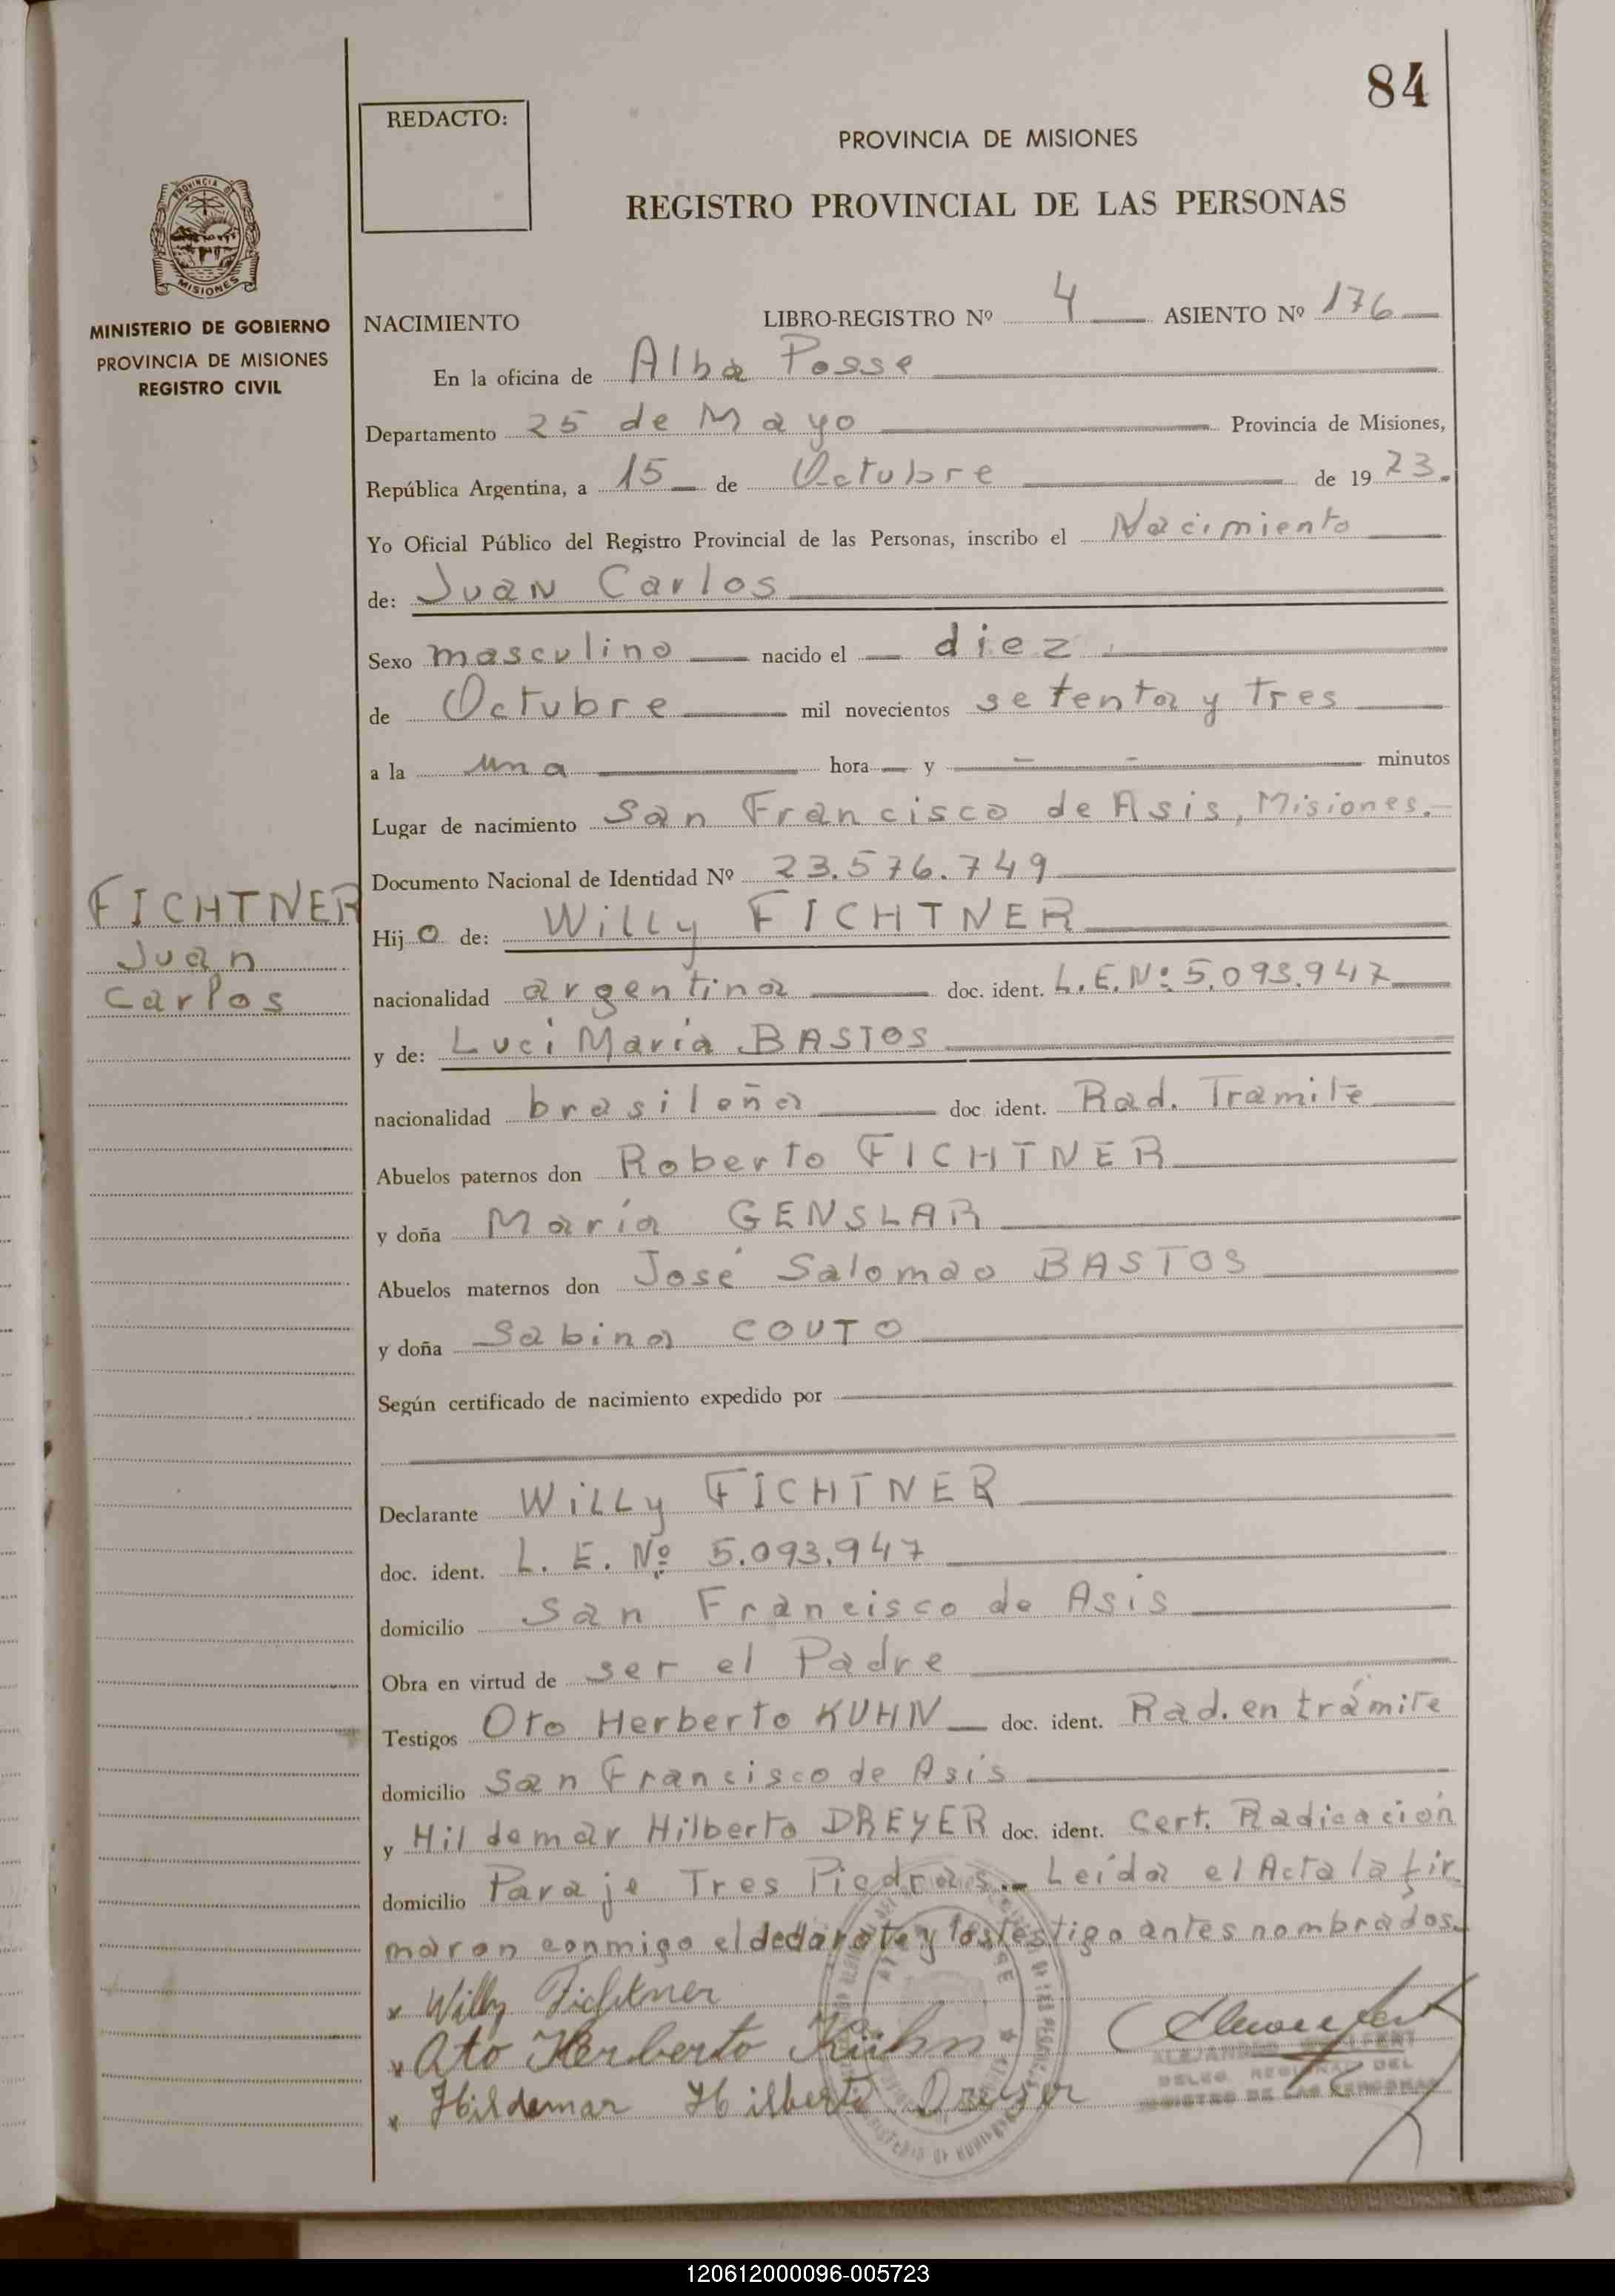 84
REDACTO:
PROVINCIA DE MISIONES
REGISTRO PROVINCIAL DE LAS PERSONAS
PROVINCIA DE
MISIONES
MINISTERIO DE GOBIERNO
PROVINCIA DE MISIONES
REGISTRO CIVIL
NACIMIENTO LIBRO-REGISTRO Nº 4 ASIENTO Nº 176
En la oficina de Alba Posse
Departamento 25 de Mayo Provincia de Misiones,
República Argentina, a 15 de Octubre de 19 73.
Yo Oficial Público del Registro Provincial de las Personas, inscribo el Nacimiento
de: Juan Carlos
Sexo masculino nacido el diez
de Octubre mil novecientos setenta y Tres
a la una hora y minutos
Lugar de nacimiento San Francisco de Asis, Misiones.
Documento Nacional de Identidad Nº 23.576.749
FICHTNER
Juan
Carlos
Hij o de: Willy FICHTNER
nacionalidad argentina doc. ident. L.E.Nº 5.093.947
y de: Luci María BASTOS
nacionalidad brasileña doc ident. Rad. Tramite
Abuelos paternos don Roberto FICHTNER
y doña María GENSLAR
Abuelos maternos don José Salomao BASTOS
y doña Sabina COUTO
Según certificado de nacimiento expedido por
Declarante Willy FICHTNER
doc. ident. L. E. Nº 5.093.947
domicilio San Francisco de Asis
Obra en virtud de ser el Padre
Testigos Oto Herberto KUHN doc. ident. Rad. en trámite
domicilio San Francisco de Asís
y Hildemar Hilberto DREYER doc. ident. Cert. Radicación
domicilio Paraje Tres Piedras.- Leída el Acta la fir
maron conmigo el declarate y los testigo antes nombrados.
x Willy Fichtner
x Oto Herberto Kühn
x Hildemar Hilberto Dreyer
DELEG. REGIONAL DEL
REGISTRO DE LAS PERSONAS
120612000096-005723